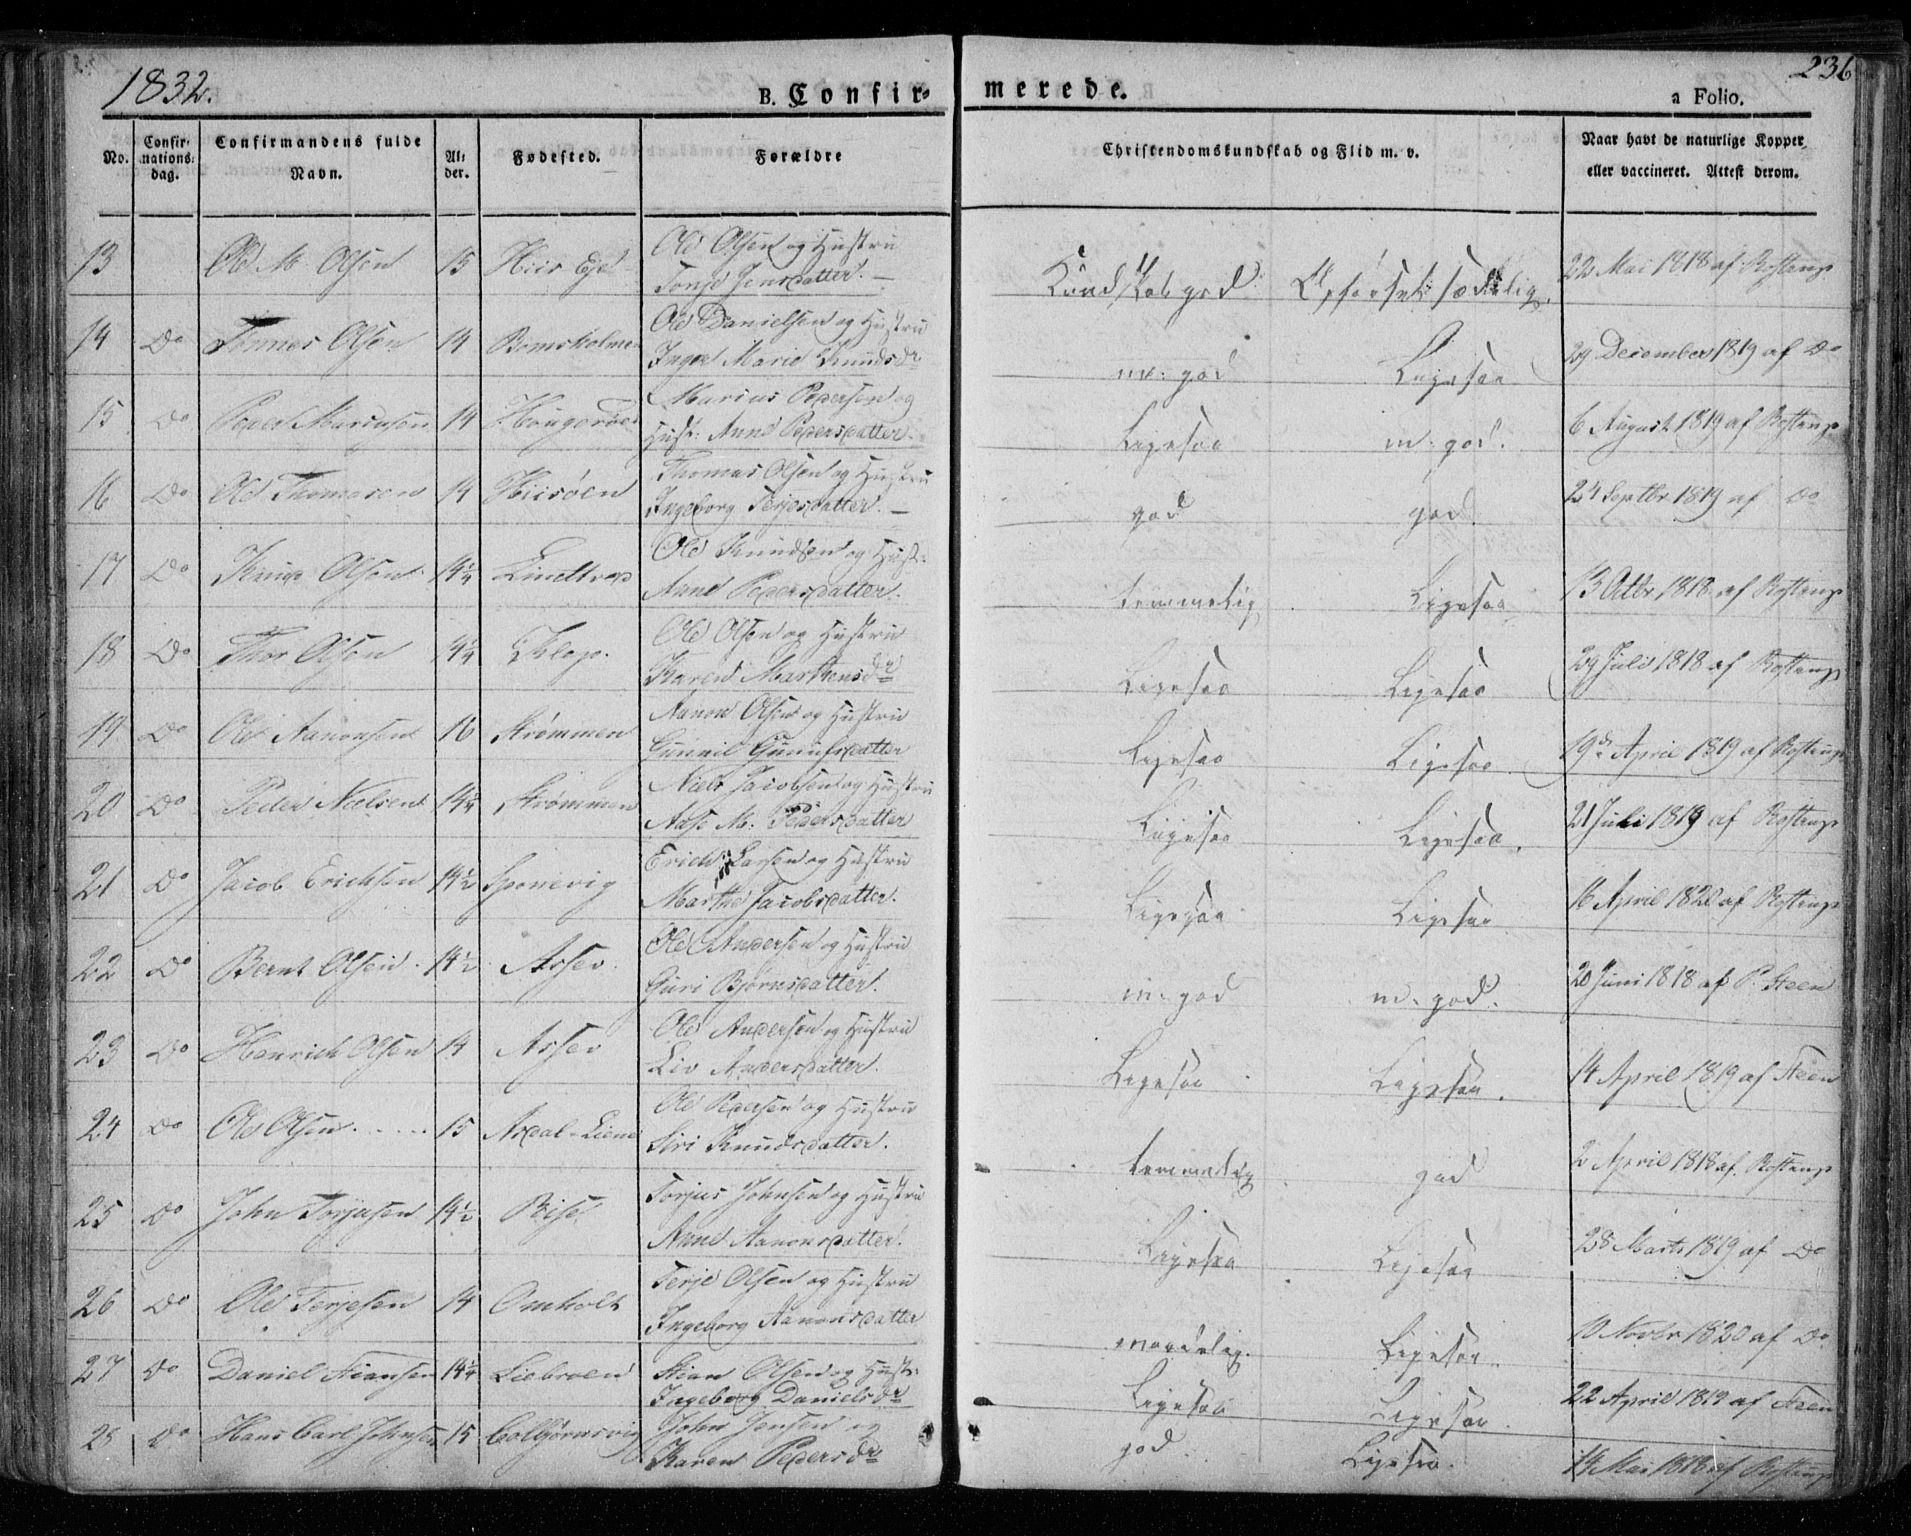 1832.
B. Confirmerede.
236
a Folio.
No.
Confirmations-dag.
Confirmandens fulde Navn.
Alder.
Fødested.
Forældre
Christendomskundskab og Flid m. v.
Naar havt de naturlige Kopper, eller vaccineret. Attest derom.
13 Ole M. Olsen 15 Hiis Eje Ole Olsen og Hustru
Tonje Jensdatter. — Kundskab god Opførsel sædelig. 22 Mai 1818 af Rostrup
14 Do Tønnes Olsen 14 Bomsholmen Ole Danielsen og Hustru
Inger Marie Knudsdr m: god Ligesaa 29 December 1819 af Do
15 Do Peder Mariusen 14 Marius Pedersen og
Hust: Anne Pedersdatter. Ligesaa m: god. 6 August 1819 af Rostrup
16 Do Ole Thomesen 14 Hiisøen Thomas Olsen og Hustru
Ingeborg Terjesdatter. — god god. 24 Septbr 1819 af Do
17 Do Knud Olsen 14¼ Lindtrap Ole Knudsen og Hust:
Anne Pedersdatter. temmelig Ligesaa 13 Octbr 1818 af Rostrup
18 Do Thor Olsen 14¼ Klop. Ole Olsen og Hustru
Karen Marthensdr Ligesaa Ligesaa 29 Juli 1818 af Rostrup
19 Do Ole Aanonsen 16 Strømmen Aanon Olsen og Hustru
Gunnil Gunufsdatter Ligesaa Ligesaa 19de April 1819 af Rostrup
20 Do Peder Nielsen 14¼ Strømmen Niels Jacobsen og Hustru
Aase M. Pedersdatter Ligesaa Ligesaa. 21 Juli 1819 af Rostrup
21 Do Jacob Erichsen 14½ Sponevig Erich Larsen og Hustru
Marthe Jacobsdatter. Ligesaa Ligesaa 16 April 1820 af Rostrup
22 Do Bernt Olsen 14½ Assev Ole Andersen og Hustru
Guri Bjørnsdatter. m: god m: god. 20 Juni 1818 af P. Steen
23 Do Henrich Olsen 14 Assev Ole Andersen og Hustru
Liv Andersdatter. Ligesaa Ligesaa. 14 April 1819 af Steen
24 Do Ole Olsen 15 Asdal-Liene Ole Pedersen og Hustru
Siri Knudsdatter. temmelig god 2 April 1818 af Rostrup
25 Do John Torjusen 14½ Bise Torjus Johnsen og Hustru
Anne Aanonsdatter. Ligesaa Ligesaa 28 Marts 1819 af Do
26 Do Ole Terjesen 14 Omholt Terje Olsen og Hustru
Ingeborg Aanonsdatter maadelig. Ligesaa. 10 Novbr 1820 af Do
27 Do Daniel Stiansen 14¼ Liebroen Stian Olsen og Hust:
Ingeborg Danielsdr Ligesaa Ligesaa 22 April 1819 af Steen
28 Do Hans Carl Johnsen 15 Colbjørnsvig John Jensen og
Karen Pedersdr god. Ligesaa. 14 Mai 1818 af Rostrup